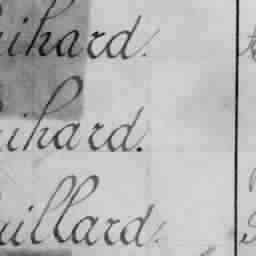 uihard.
uihard.
uillard.